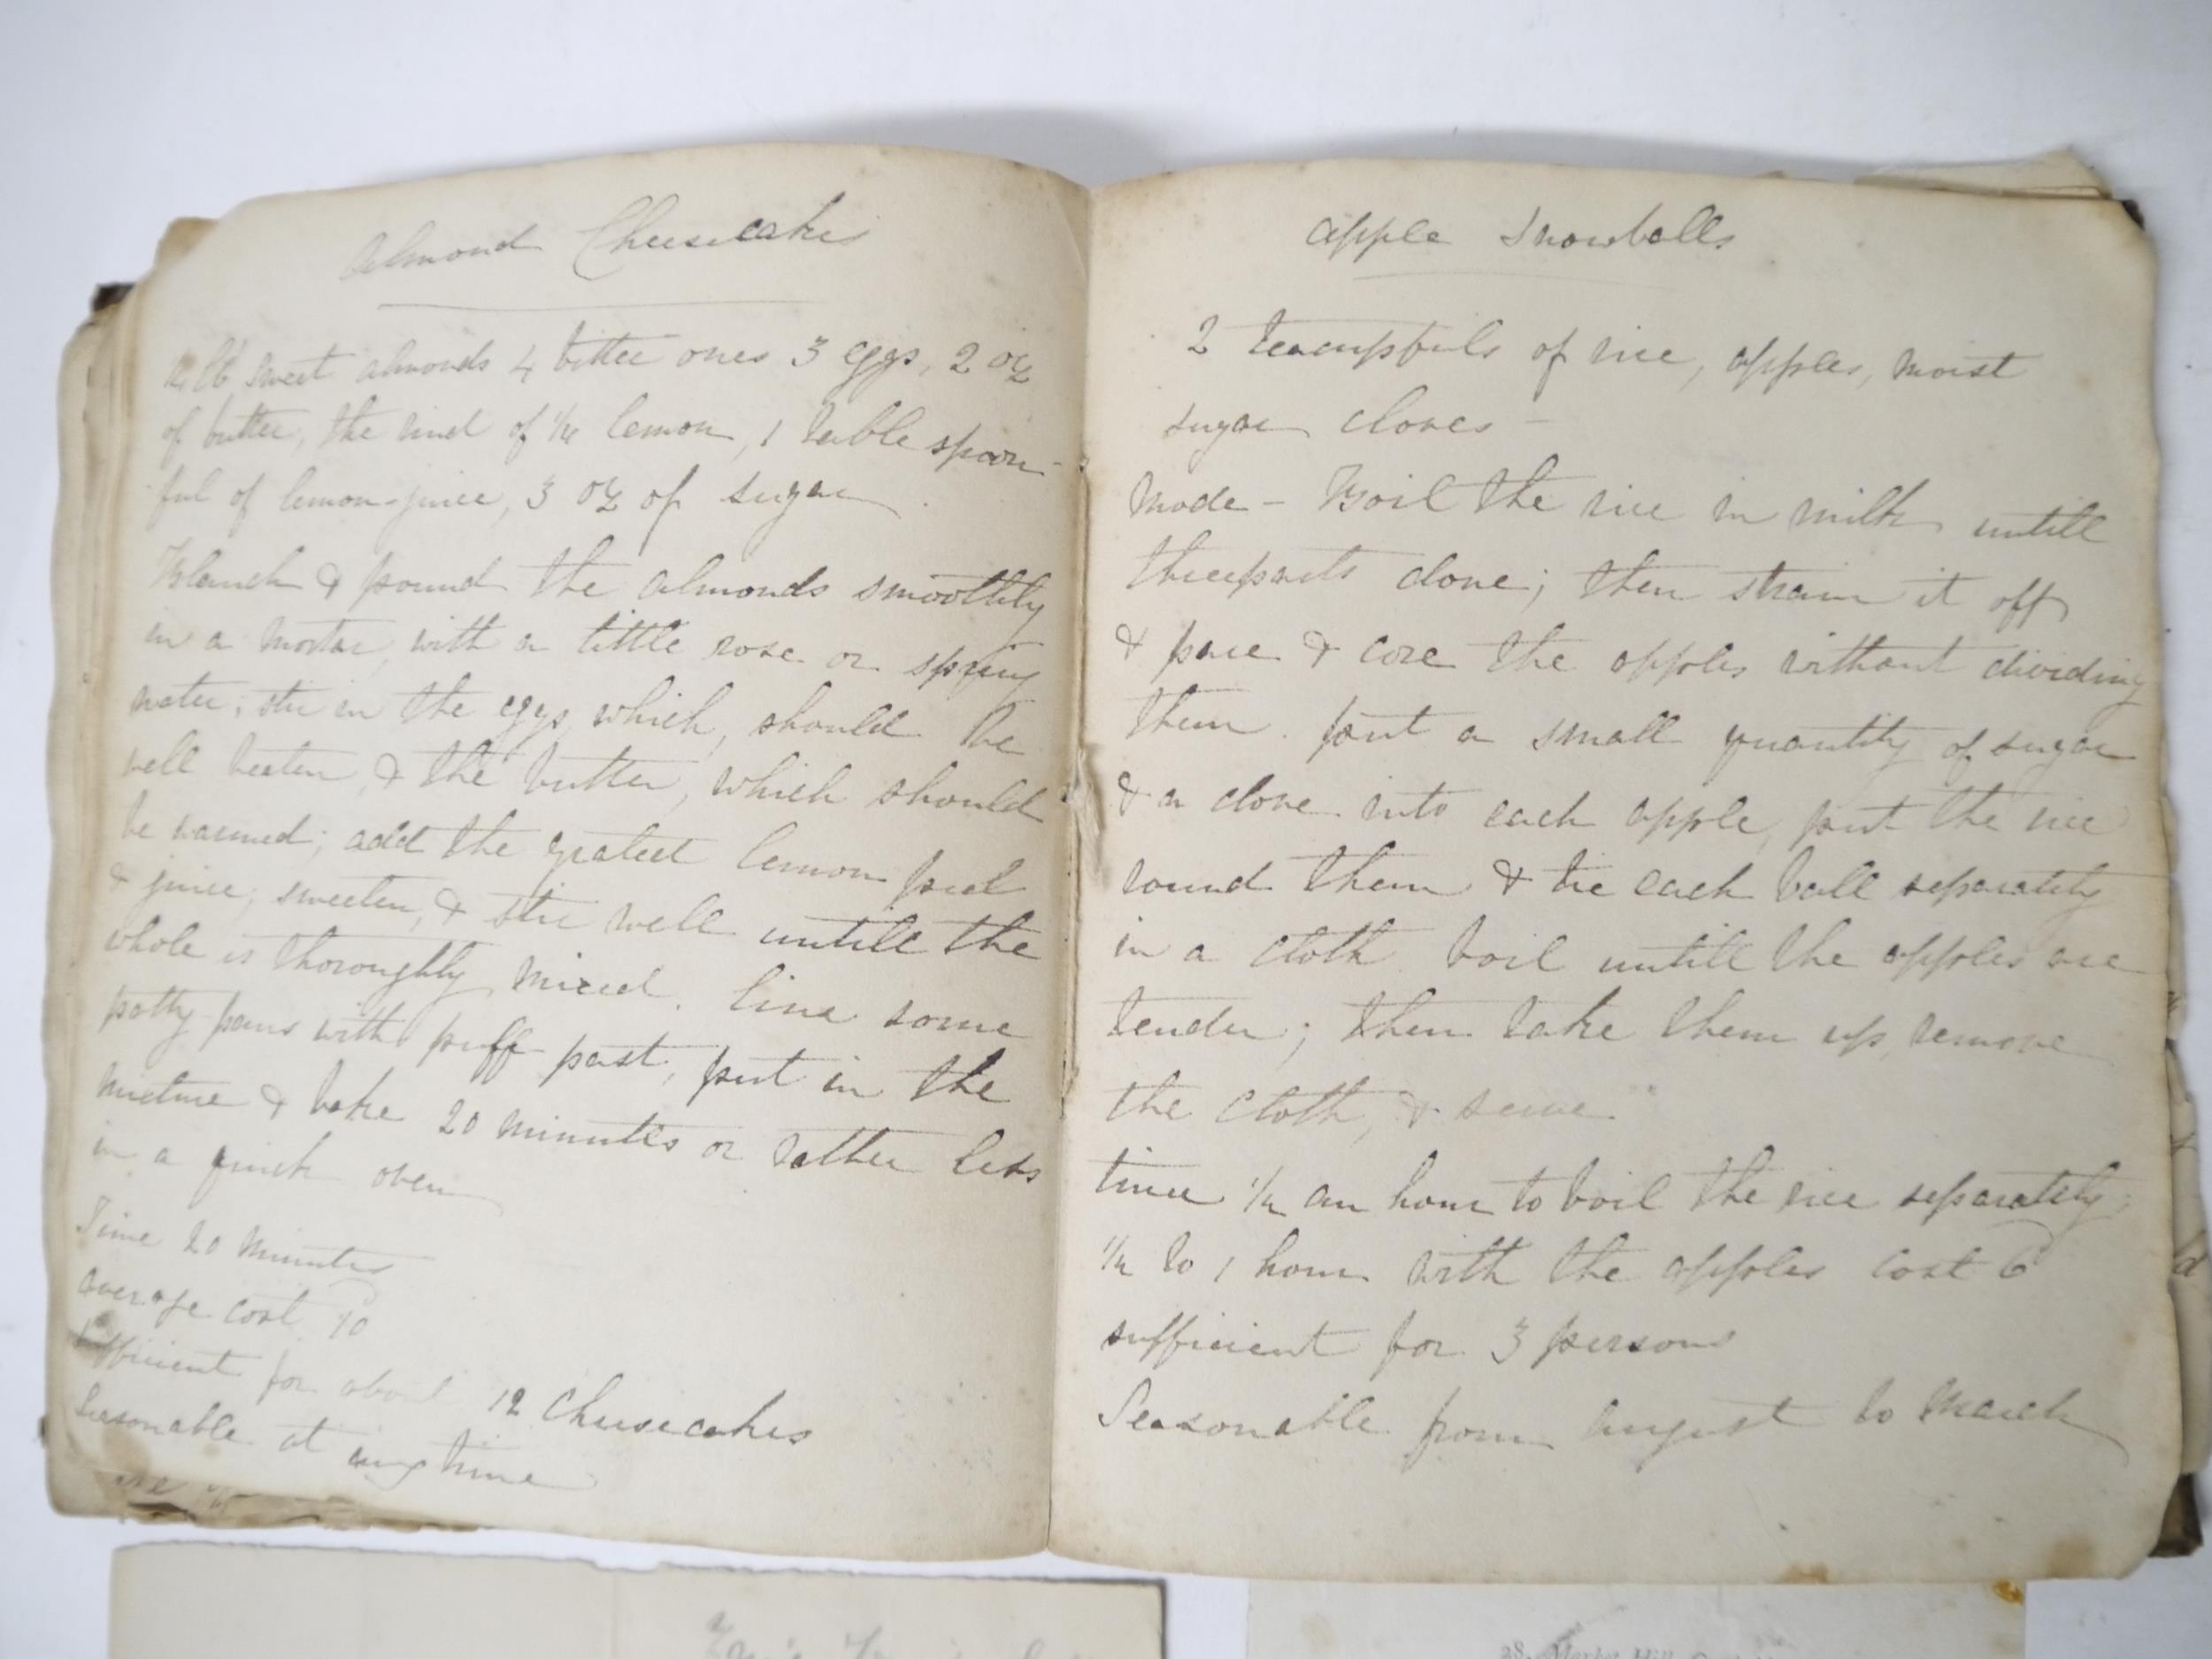 Almond Cheesecakes
lb sweet almonds 4 bitter ones 3 eggs, 2 oz
of butter, the rind of 1/4 lemon, 1 table spoon-
ful of lemon-juice, 3 oz of sugar.
Blanch & pound the almonds smoothly
in a mortar, with a little rose or spring
water; stir in the eggs, which, should be
well beaten, & the butter, which should
be warmed; add the grated lemon peel
& juice, sweeten, & stir well untill the
whole is thoroughly mixed. line some
patty pans with puff past, put in the
mixture & bake 20 minutes or rather less
in a quick oven
Time 20 minutes
average cost 10
sufficient for about 12 Cheesecakes
Seasonable at any time
apple Snowballs
2 teacupfuls of rice, apples, moist
sugar cloves -
Mode - Boil the rice in milk untill
threeparts done; then strain it off
& pare & core the apples without dividing
them. put a small quantity of sugar
& a clove into each apple, put the rice
round them & tie each ball separately
in a cloth. boil untill the apples are
tender; then take them up, remove
the cloth, & serve.
time 1/2 an hour to boil the rice separately;
1/2 to 1 hour with the apples cost 6d
sufficient for 3 persons
Seasonable from August to March
28, Market Hill